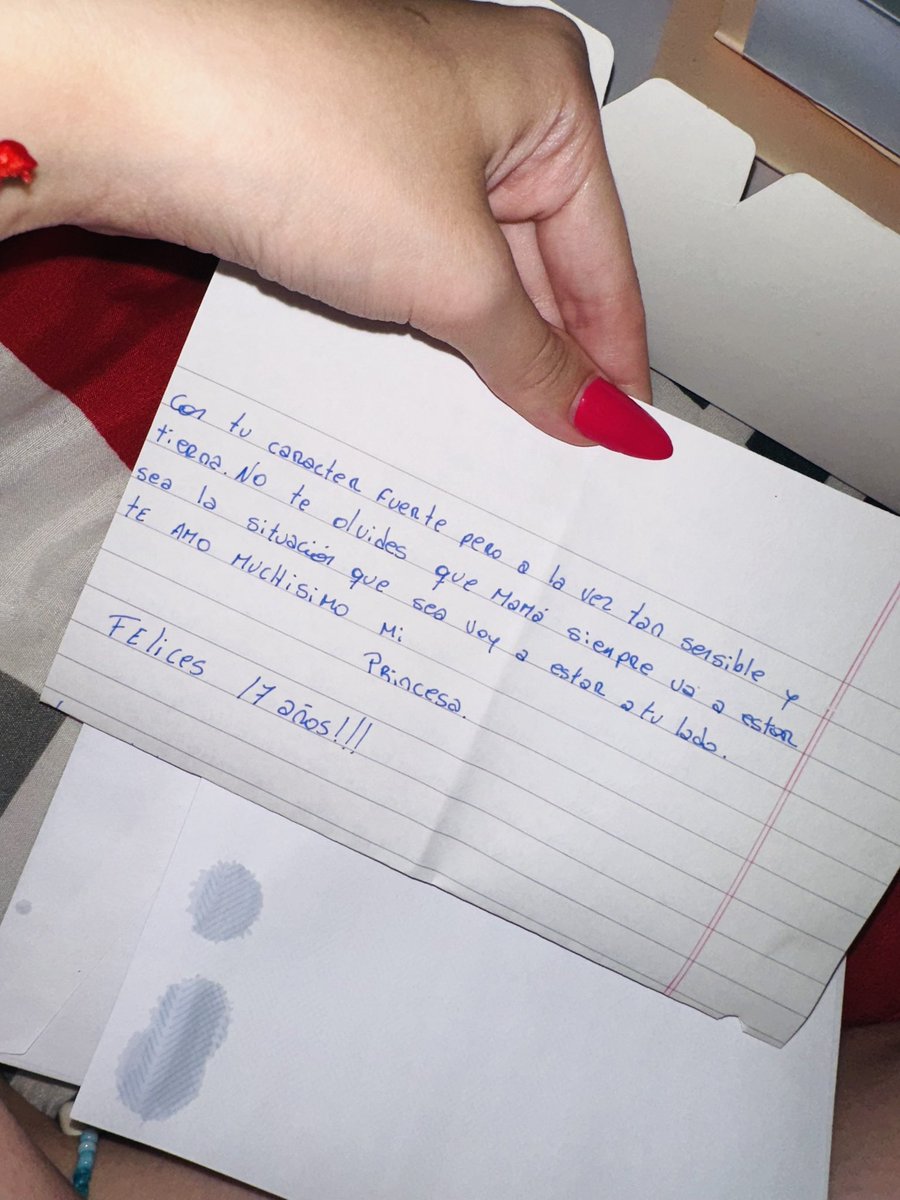 Con tu caracter fuerte pero a la vez tan sensible y
tierna. No te olvides que Mamá siempre va a estar
sea la situación que sea voy a estar a tu lado.
TE AMO MUCHISIMO Mi
Princesa.
FElices 17 años!!!